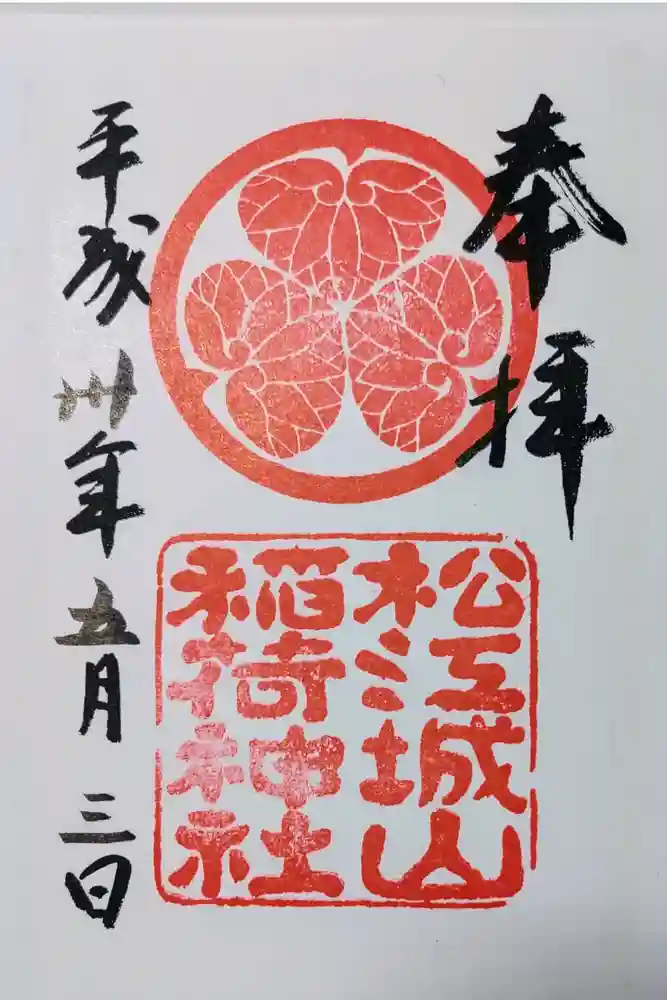 奉拝
松江城山
稲荷神社
平成卅年五月三日